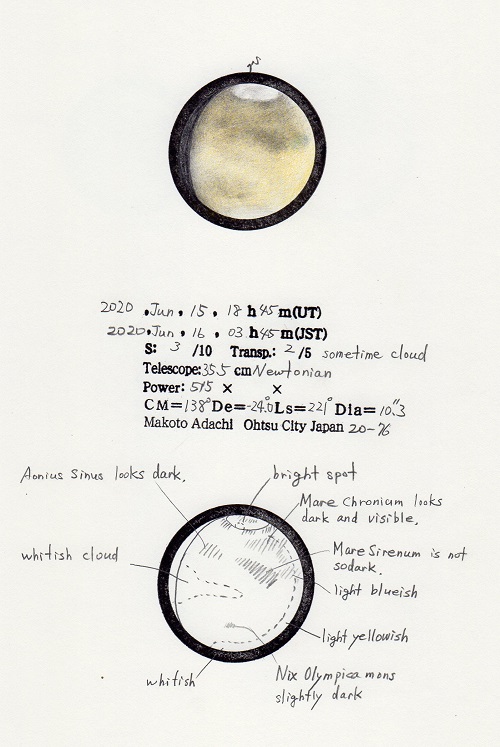 2020 . Jun . 15 . 18 h 45 m(UT)
2020 . Jun . 16 . 03 h 45 m(JST)
S: 3 /10 Transp.: 2 /5 sometime cloud
Telescope: 35.5 cm Newtonian
Power: 515 × ×
CM=138° De=-24.0° Ls=221° Dia=10".3
Makoto Adachi Ohtsu City Japan 20-76
Aonius Sinus looks dark.
bright spot
Mare Chronium looks
dark and visible.
whitish cloud
Mare Sirenum is not
so dark.
light blueish
light yellowish
whitish
Nix Olympica mons
slightly dark